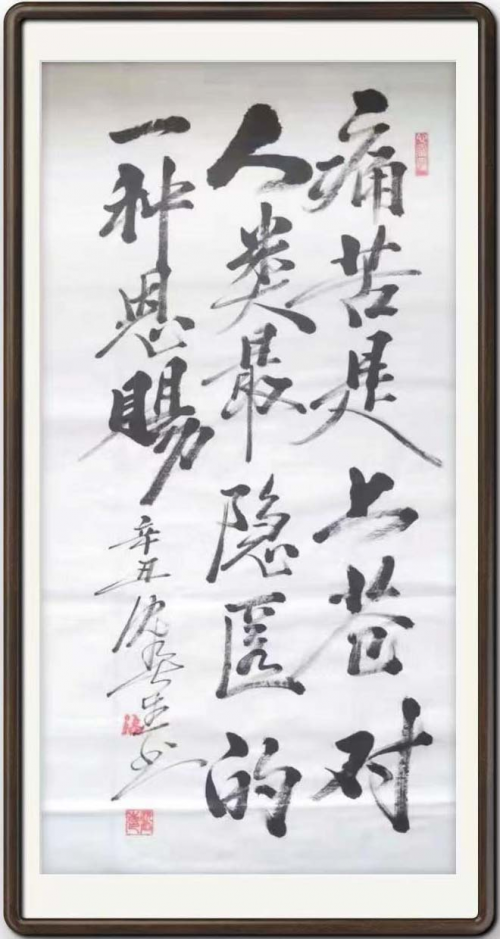 痛苦是上苍对
人类最隐匿的
一种恩赐
辛丑